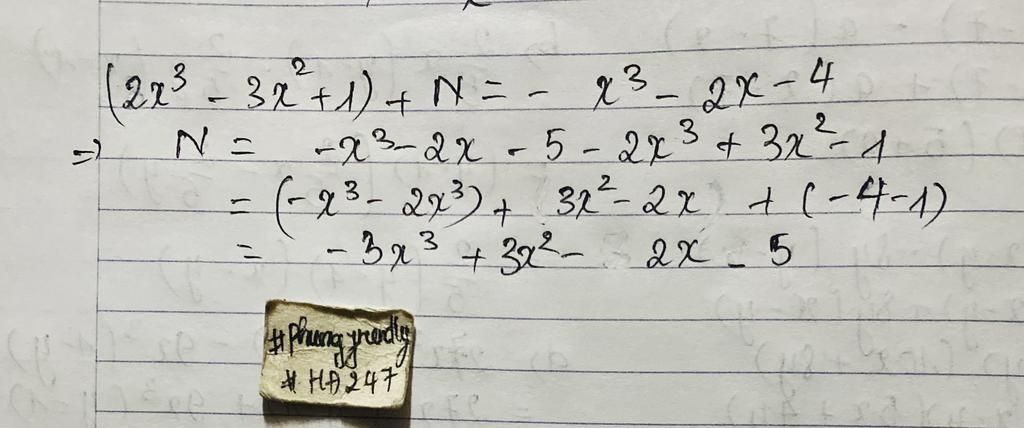 (2x³ - 3x² + 1) + N = - x³ - 2x - 4
=> N = -x³ - 2x - 5 - 2x³ + 3x² - 1
= (-x³ - 2x³) + 3x² - 2x + (-4-1)
= -3x³ + 3x² - 2x - 5
# HA247